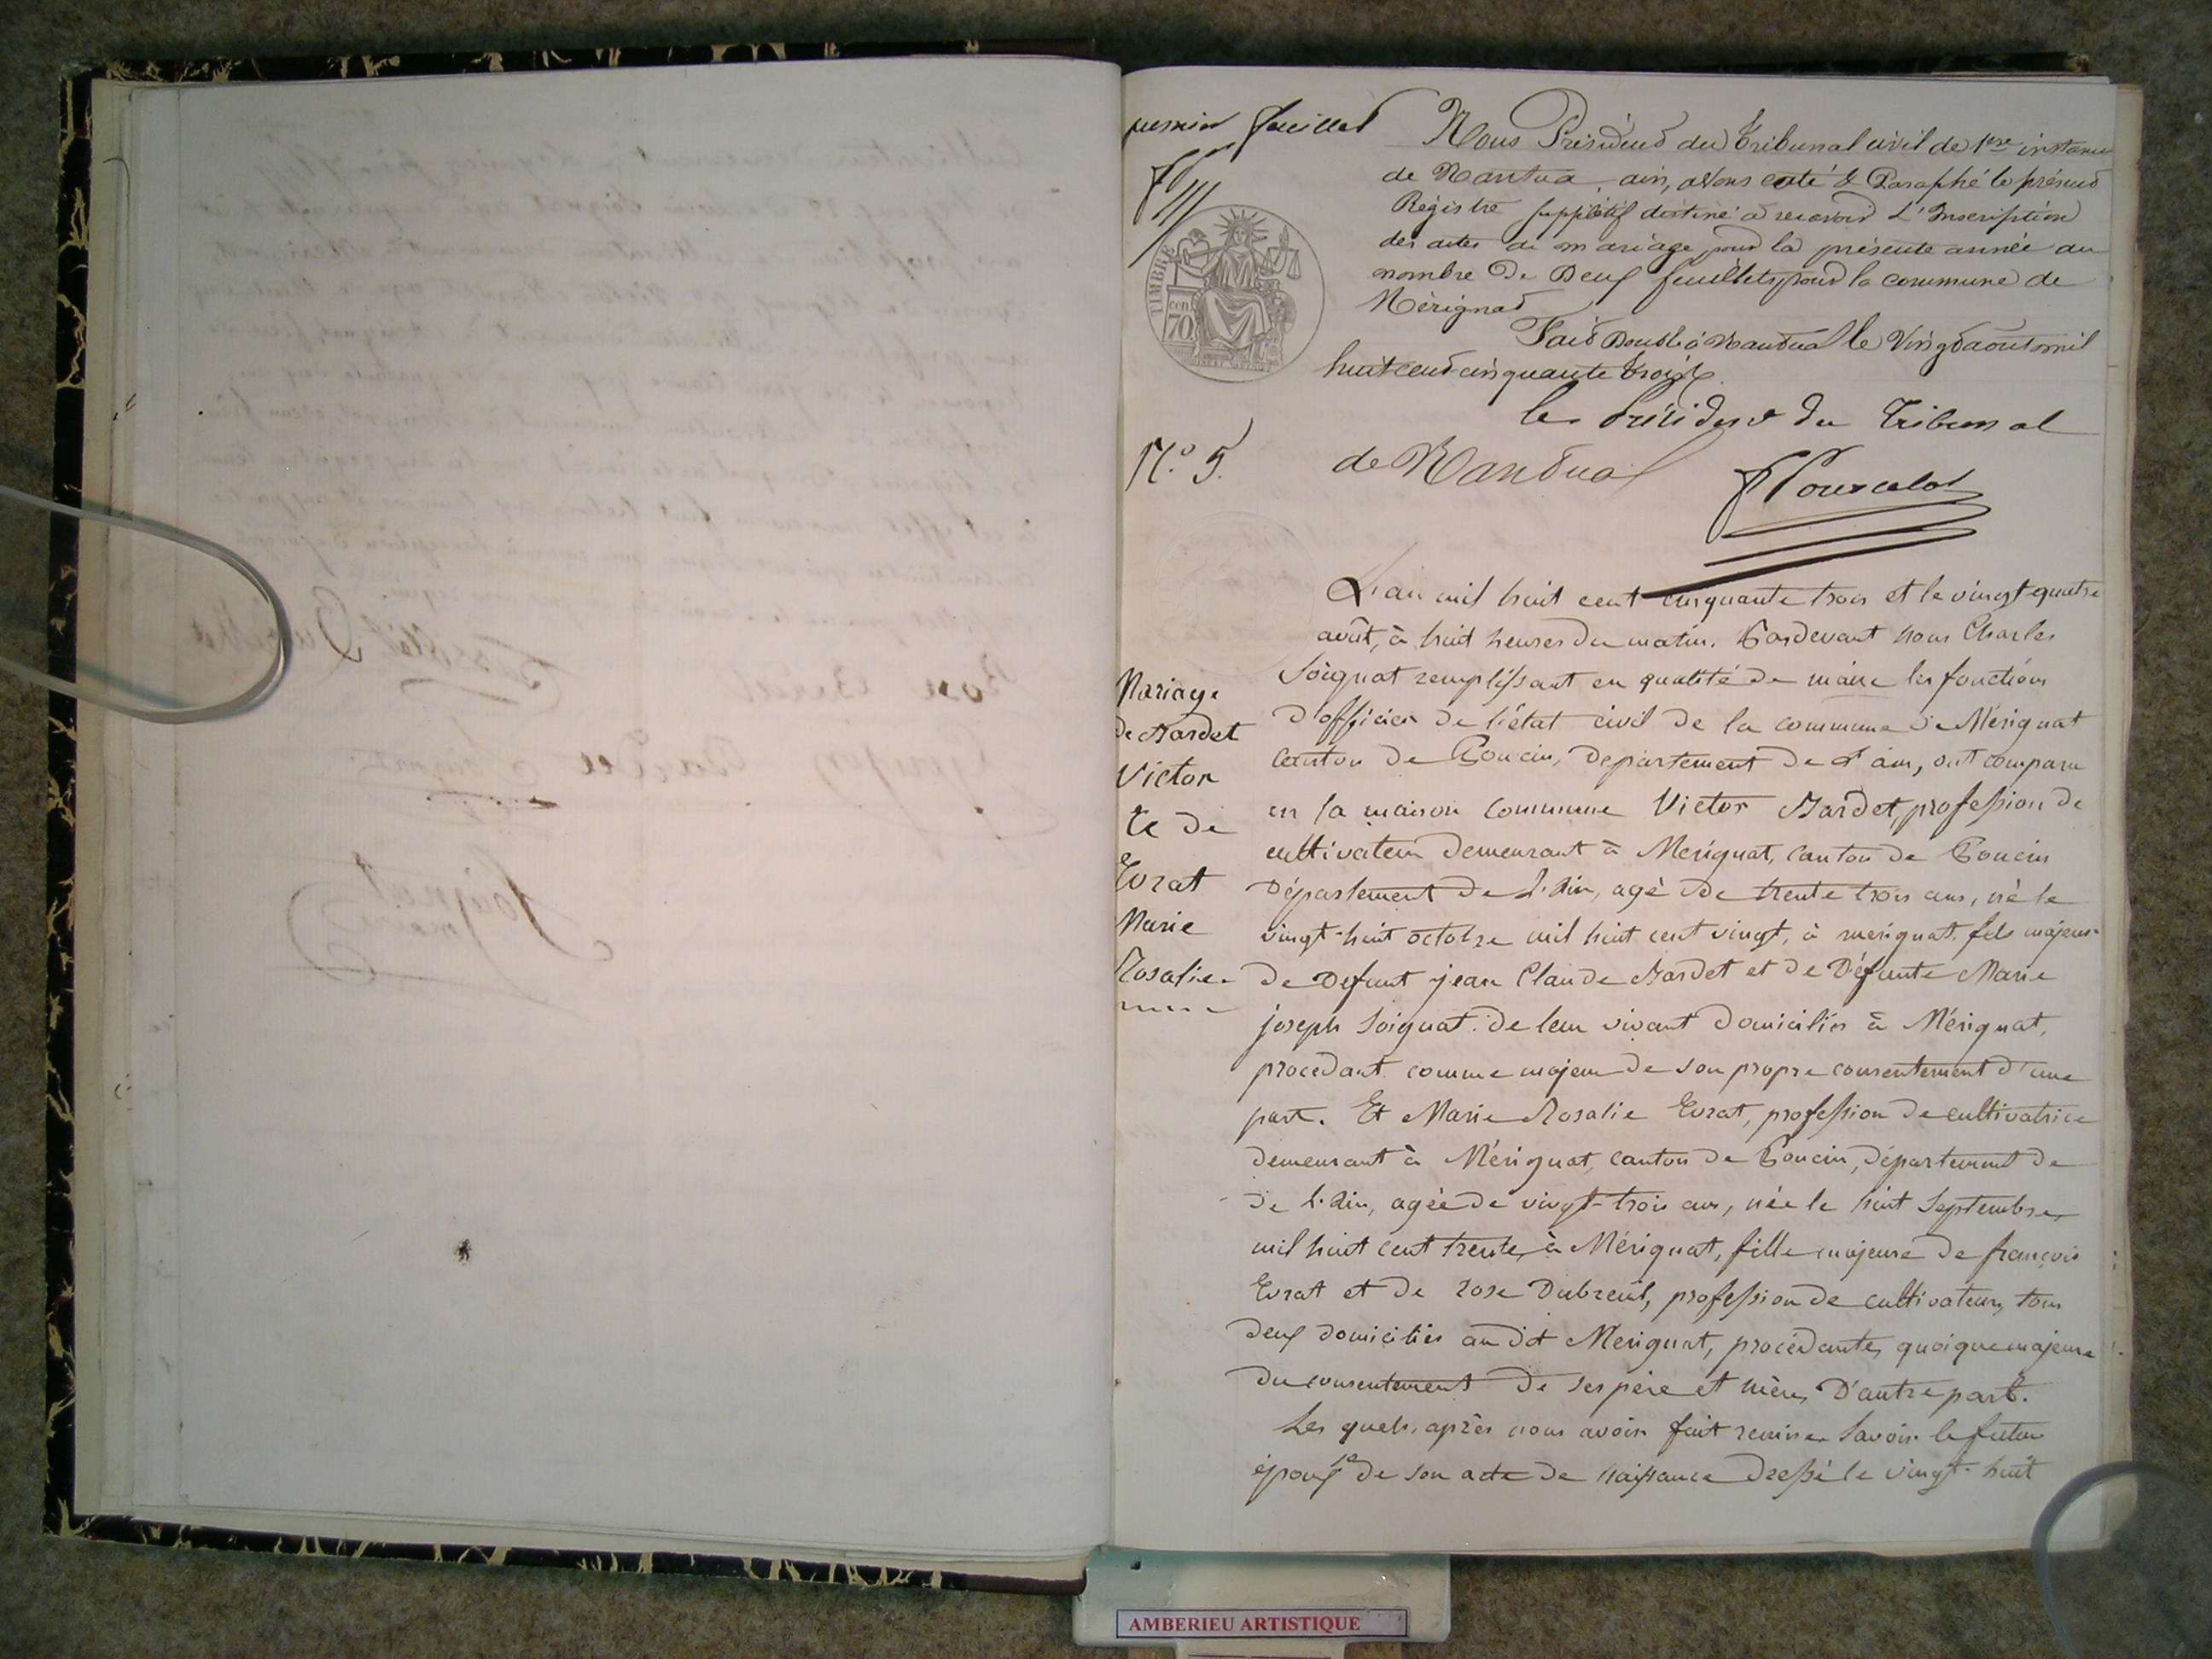 premier feuillet
Nous Président du Tribunal civil de 1ere instance
de Nantua, ain, avons coté & Paraphé le présent
Registre supplétif destiné a recevoir L'Inscription
des actes de mariage pour la présente année au
nombre de Deux feuillets, pour la commune de
Mérignat
Fait Double à Nantua le Vingt août mil
huit cent cinquante trois
TIMBRE
70
le Président du Tribunal
de Nantua
N.° 5.
L'an mil huit cent cinquante trois et le vingt-quatre
août, à huit heures du matin. Pardevant nous Charles
Soignat remplissant en qualité de maire les fonctions
d'officier de l'état civil de la commune de Mérignat
canton de Poncin, département de l'ain, ont comparu
en la maison commune Victor Bardet, profession de
cultivateur demeurant à Merignat, canton de Poncin
Département de L'Ain, agé de trente trois ans, né le
vingt-huit octobre mil huit cent vingt, à merignat, fils majeur
de Defunt jean Claude Bardet et de Défunte Marie
joseph Soignat. de leur vivant domiciliés à Mérignat,
procedant comme majeur de son propre consentement d'une
part. Et Marie Rosalie Evrat, profession de cultivatrice
demeurant à Mérignat, canton de Poncin, département de
de L'Ain, agée de vingt-trois ans, née le huit Septembre,
mil huit cent trente, à Mérignat, fille majeure de françois
Evrat et de rose Dubreuil, profession de cultivateurs, tous
deux domiciliés au dit Merignat, procédante, quoique majeure
du consentement de ses père et mère, D'autre part.
Les quels, après nous avoir fait remise Savoir le futur
époux 1° de son acte de naissance dressé le vingt-huit
Mariage
de Bardet
Victor
et de
Evrat
Marie
Rosalie.
AMBERIEU ARTISTIQUE